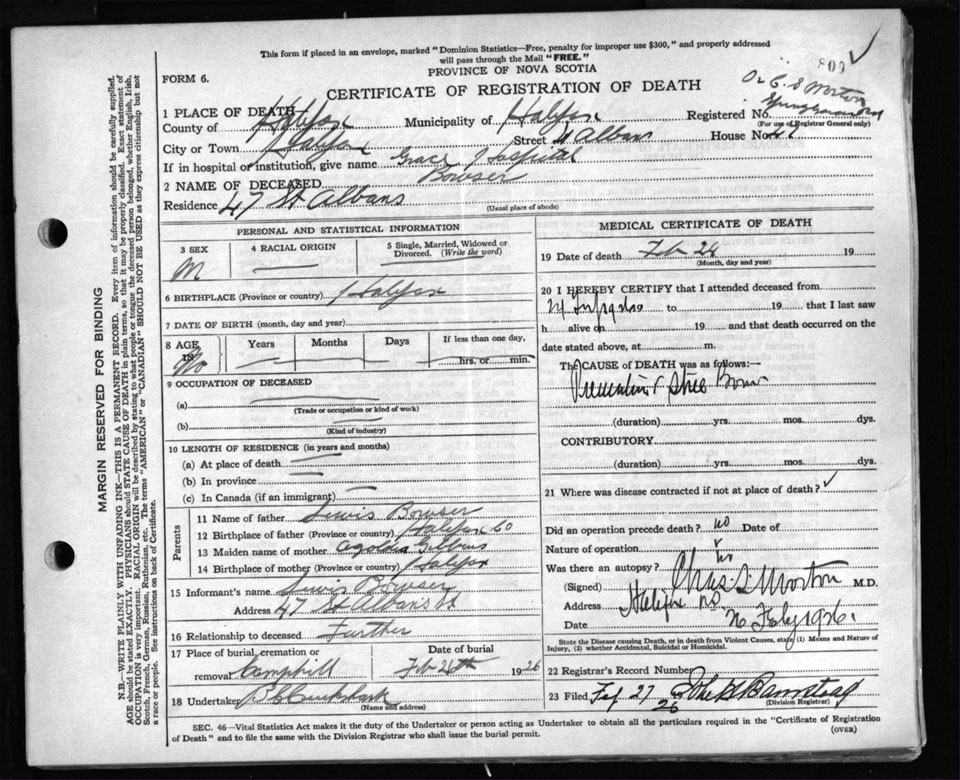 This form if placed in an envelope, marked "Dominion Statistics—Free, penalty for improper use $300," and properly addressed
will pass through the Mail "FREE."
PROVINCE OF NOVA SCOTIA
FORM 6.
CERTIFICATE OF REGISTRATION OF DEATH
Dr C. S Morton
1 PLACE OF DEATH
County of Halifax Municipality of Halifax Registered No.
(For use of Registrar General only)
City or Town Halifax Street St Albans House No 47
If in hospital or institution, give name Grace Hospital
2 NAME OF DECEASED Bowser
Residence 47 St Albans
(Usual place of abode)
PERSONAL AND STATISTICAL INFORMATION
3 SEX M
4 RACIAL ORIGIN
5 Single, Married, Widowed or Divorced. (Write the word)
6 BIRTHPLACE (Province or country) Halifax
7 DATE OF BIRTH (month, day and year)
8 AGE Years Months Days If less than one day,
hrs. or min.
9 OCCUPATION OF DECEASED
(a)
(Trade or occupation or kind of work)
(b)
(Kind of industry)
10 LENGTH OF RESIDENCE (in years and months)
(a) At place of death
(b) In province
(c) In Canada (if an immigrant)
Parents
11 Name of father Lewis Bowser
12 Birthplace of father (Province or country) Halifax Co
13 Maiden name of mother
14 Birthplace of mother (Province or country) Halifax
15 Informant's name Lewis Bowser
Address 47 St Albans St
16 Relationship to deceased Further
17 Place of burial, cremation or removal Camphill
Date of burial Feb 26th 1926
18 Undertaker
(Name and address)
MEDICAL CERTIFICATE OF DEATH
19 Date of death Feb 26 19
(Month, day and year)
20 I HEREBY CERTIFY that I attended deceased from
to 19 that I last saw
h alive on 19 and that death occurred on
date stated above, at m.
The CAUSE OF DEATH was as follows:—
(duration) yrs. mos. dys.
CONTRIBUTORY
(duration) yrs. mos. dys.
21 Where was disease contracted if not at place of death?
Did an operation precede death? no Date of
Nature of operation
Was there an autopsy? no
(Signed) Chas. S. Morton M.D.
Address Halifax NS
Date
State the Disease causing Death, or in death from Violent Causes, state (1) Means and Nature of
Injury, (2) whether Accidental, Suicidal or Homicidal.
22 Registrar's Record Number
23 Filed 27 26
(Division Registrar)
SEC. 46—Vital Statistics Act makes it the duty of the Undertaker or person acting as Undertaker to obtain all the particulars required in the "Certificate of Registration
of Death" and to file the same with the Division Registrar who shall issue the burial permit.
(OVER)
MARGIN RESERVED FOR BINDING
N.B.—WRITE PLAINLY WITH UNFADING INK—THIS IS A PERMANENT RECORD. Every item of information should be carefully supplied.
AGE should be stated EXACTLY. PHYSICIANS should STATE CAUSE OF DEATH in plain terms, so that it may be properly classified. Exact statement of
OCCUPATION is very important. RACIAL ORIGIN will be described by stating to what people or tongue the deceased person belonged, whether English, Irish,
Scotch, French, German, Russian, Ruthenian, etc. The terms "AMERICAN" or "CANADIAN" SHOULD NOT BE USED as they express citizenship but not
a race or people. See instructions on back of Certificate.